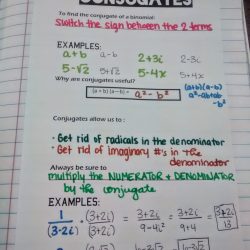 CONJUGATES
To find the conjugate of a binomial:
Switch the sign between the 2 terms
EXAMPLES:
a+b a-b 2+3i 2-3i
5-√2 5+√2 5-4x 5+4x
Why are conjugates useful? (a+b)(a-b)
(a+b)(a-b) = a²-b² a²-ab+ab
-b²
Conjugates allow us to:
• Get rid of radicals in the denominator
• Get rid of imaginary #'s in the
denominator
Always be sure to
multiply the NUMERATOR + DENOMINATOR
by the conjugate
EXAMPLES:
1/(3-2i) · (3+2i)/(3+2i) = 3+2i/9-4i² = 3+2i/9+4 = 3+2i/13